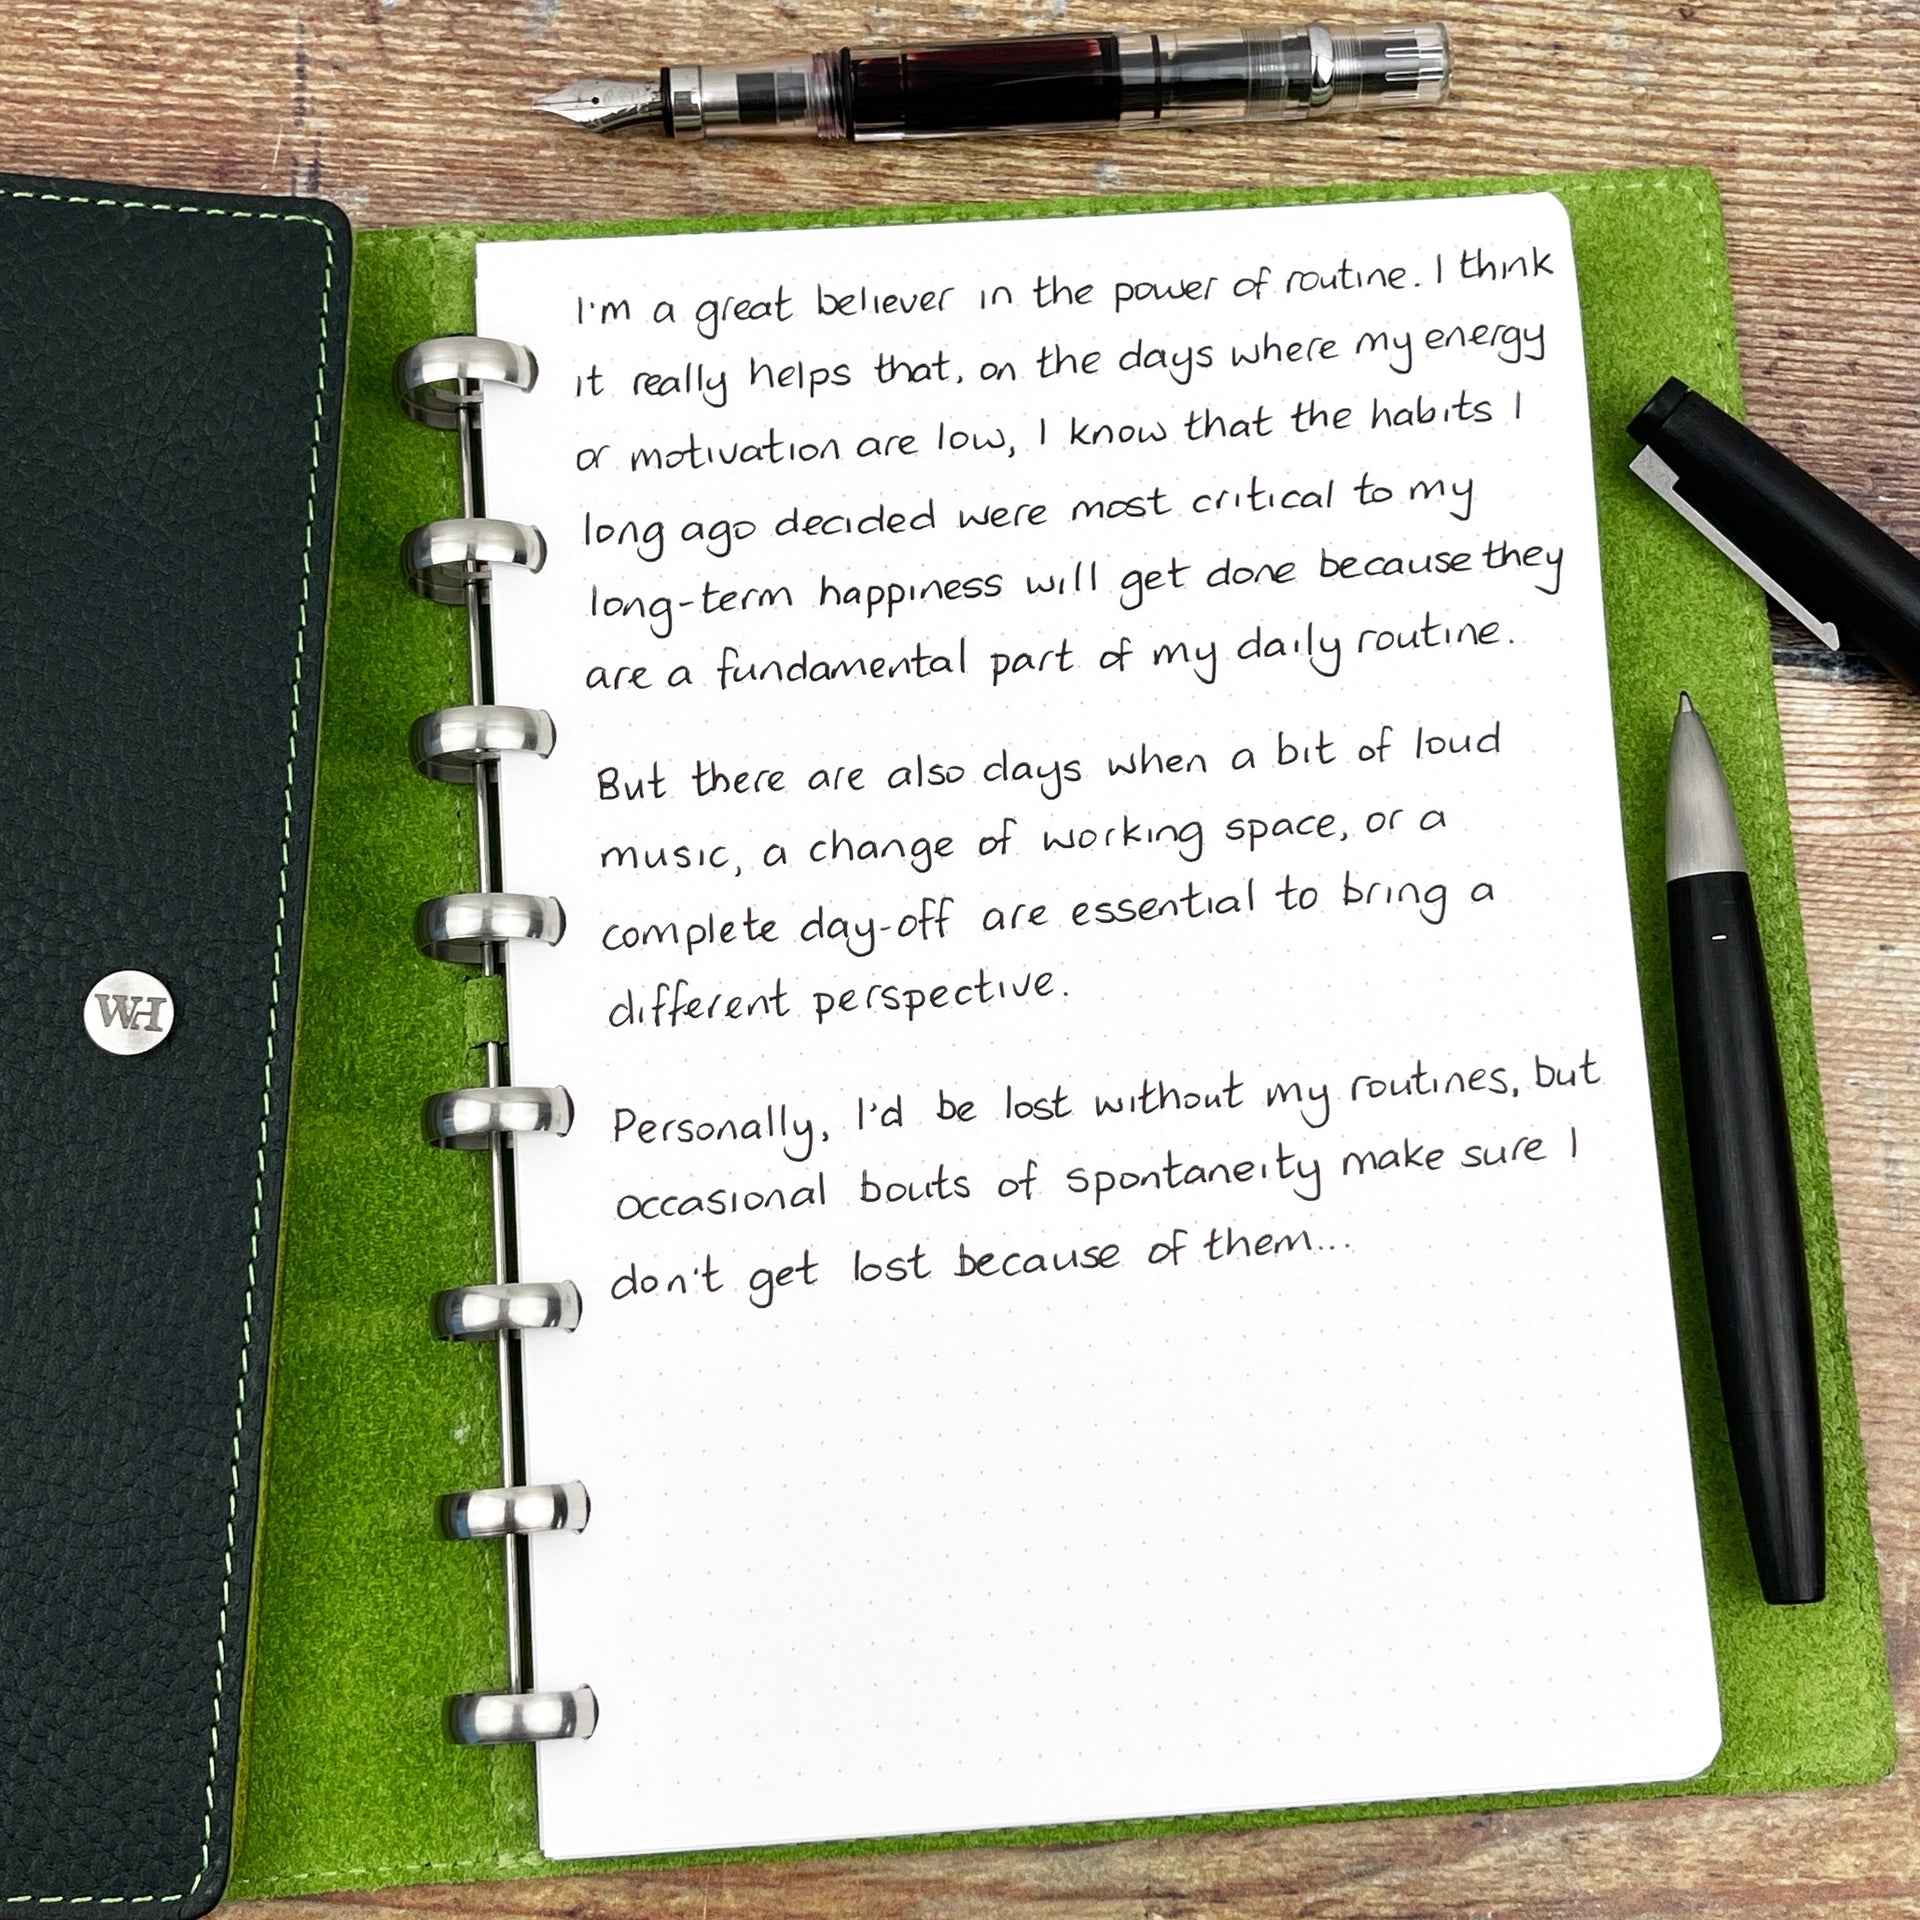 I'm a great believer in the power of routine. I think
it really helps that, on the days where my energy
or motivation are low, I know that the habits I
long ago decided were most critical to my
long-term happiness will get done because they
are a fundamental part of my daily routine.
But there are also days when a bit of loud
music, a change of working space, or a
complete day-off are essential to bring a
different perspective.
Personally, I'd be lost without my routines, but
occasional bouts of spontaneity make sure I
don't get lost because of them...
WH